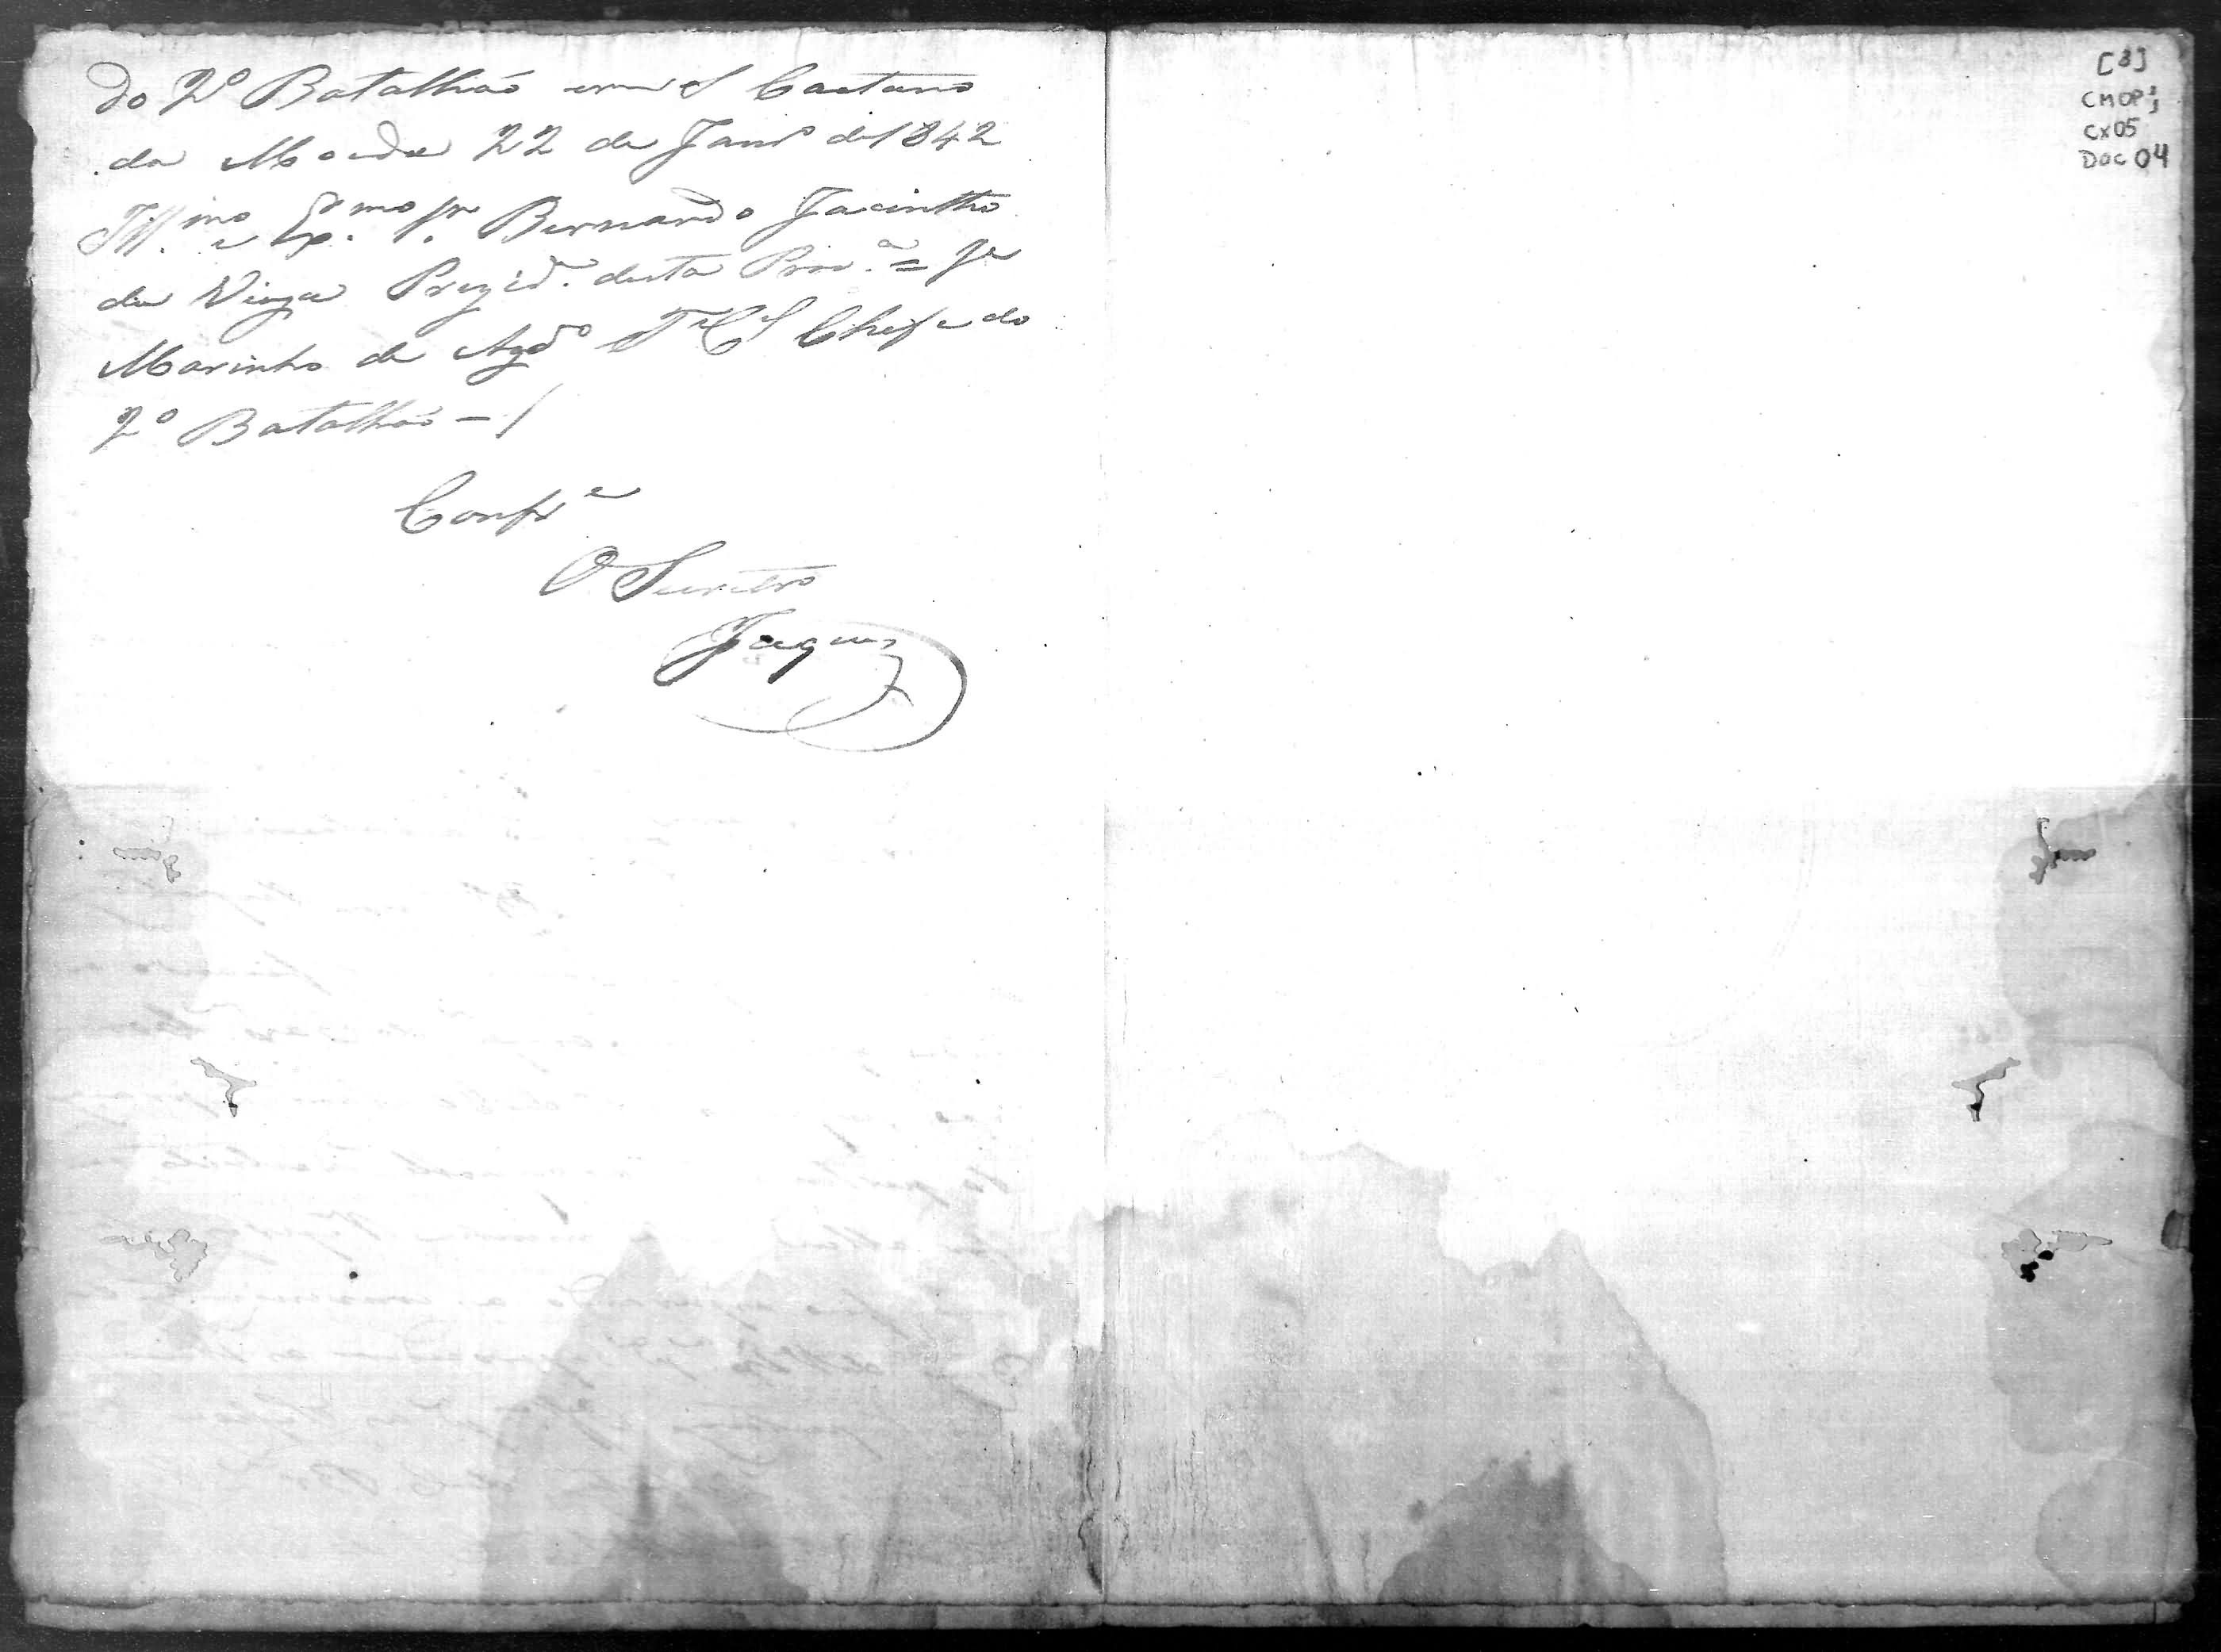 do 2º Batalhão em S Caetano
da Moeda 22 de Janrº de 1842
Illmo. e Exmo. Sr. Bernardo Jacintho
da Veiga Prezide. desta Provª. = Je
Marinho de Azdº Te Cel Chefe do
2º Batalhão - /
Confe
O Secretrº
Jaques
[8]
CMOP;
CX05
DOC 04